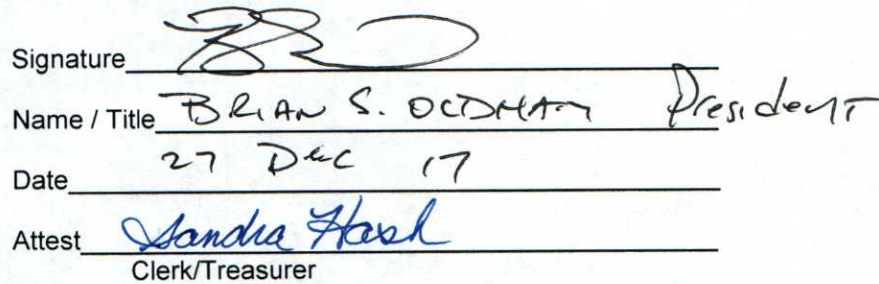 Signature
Name / Title BRIAN S. OLDHAM President
Date 27 Dec 17
Attest Sandra Hash
Clerk/Treasurer